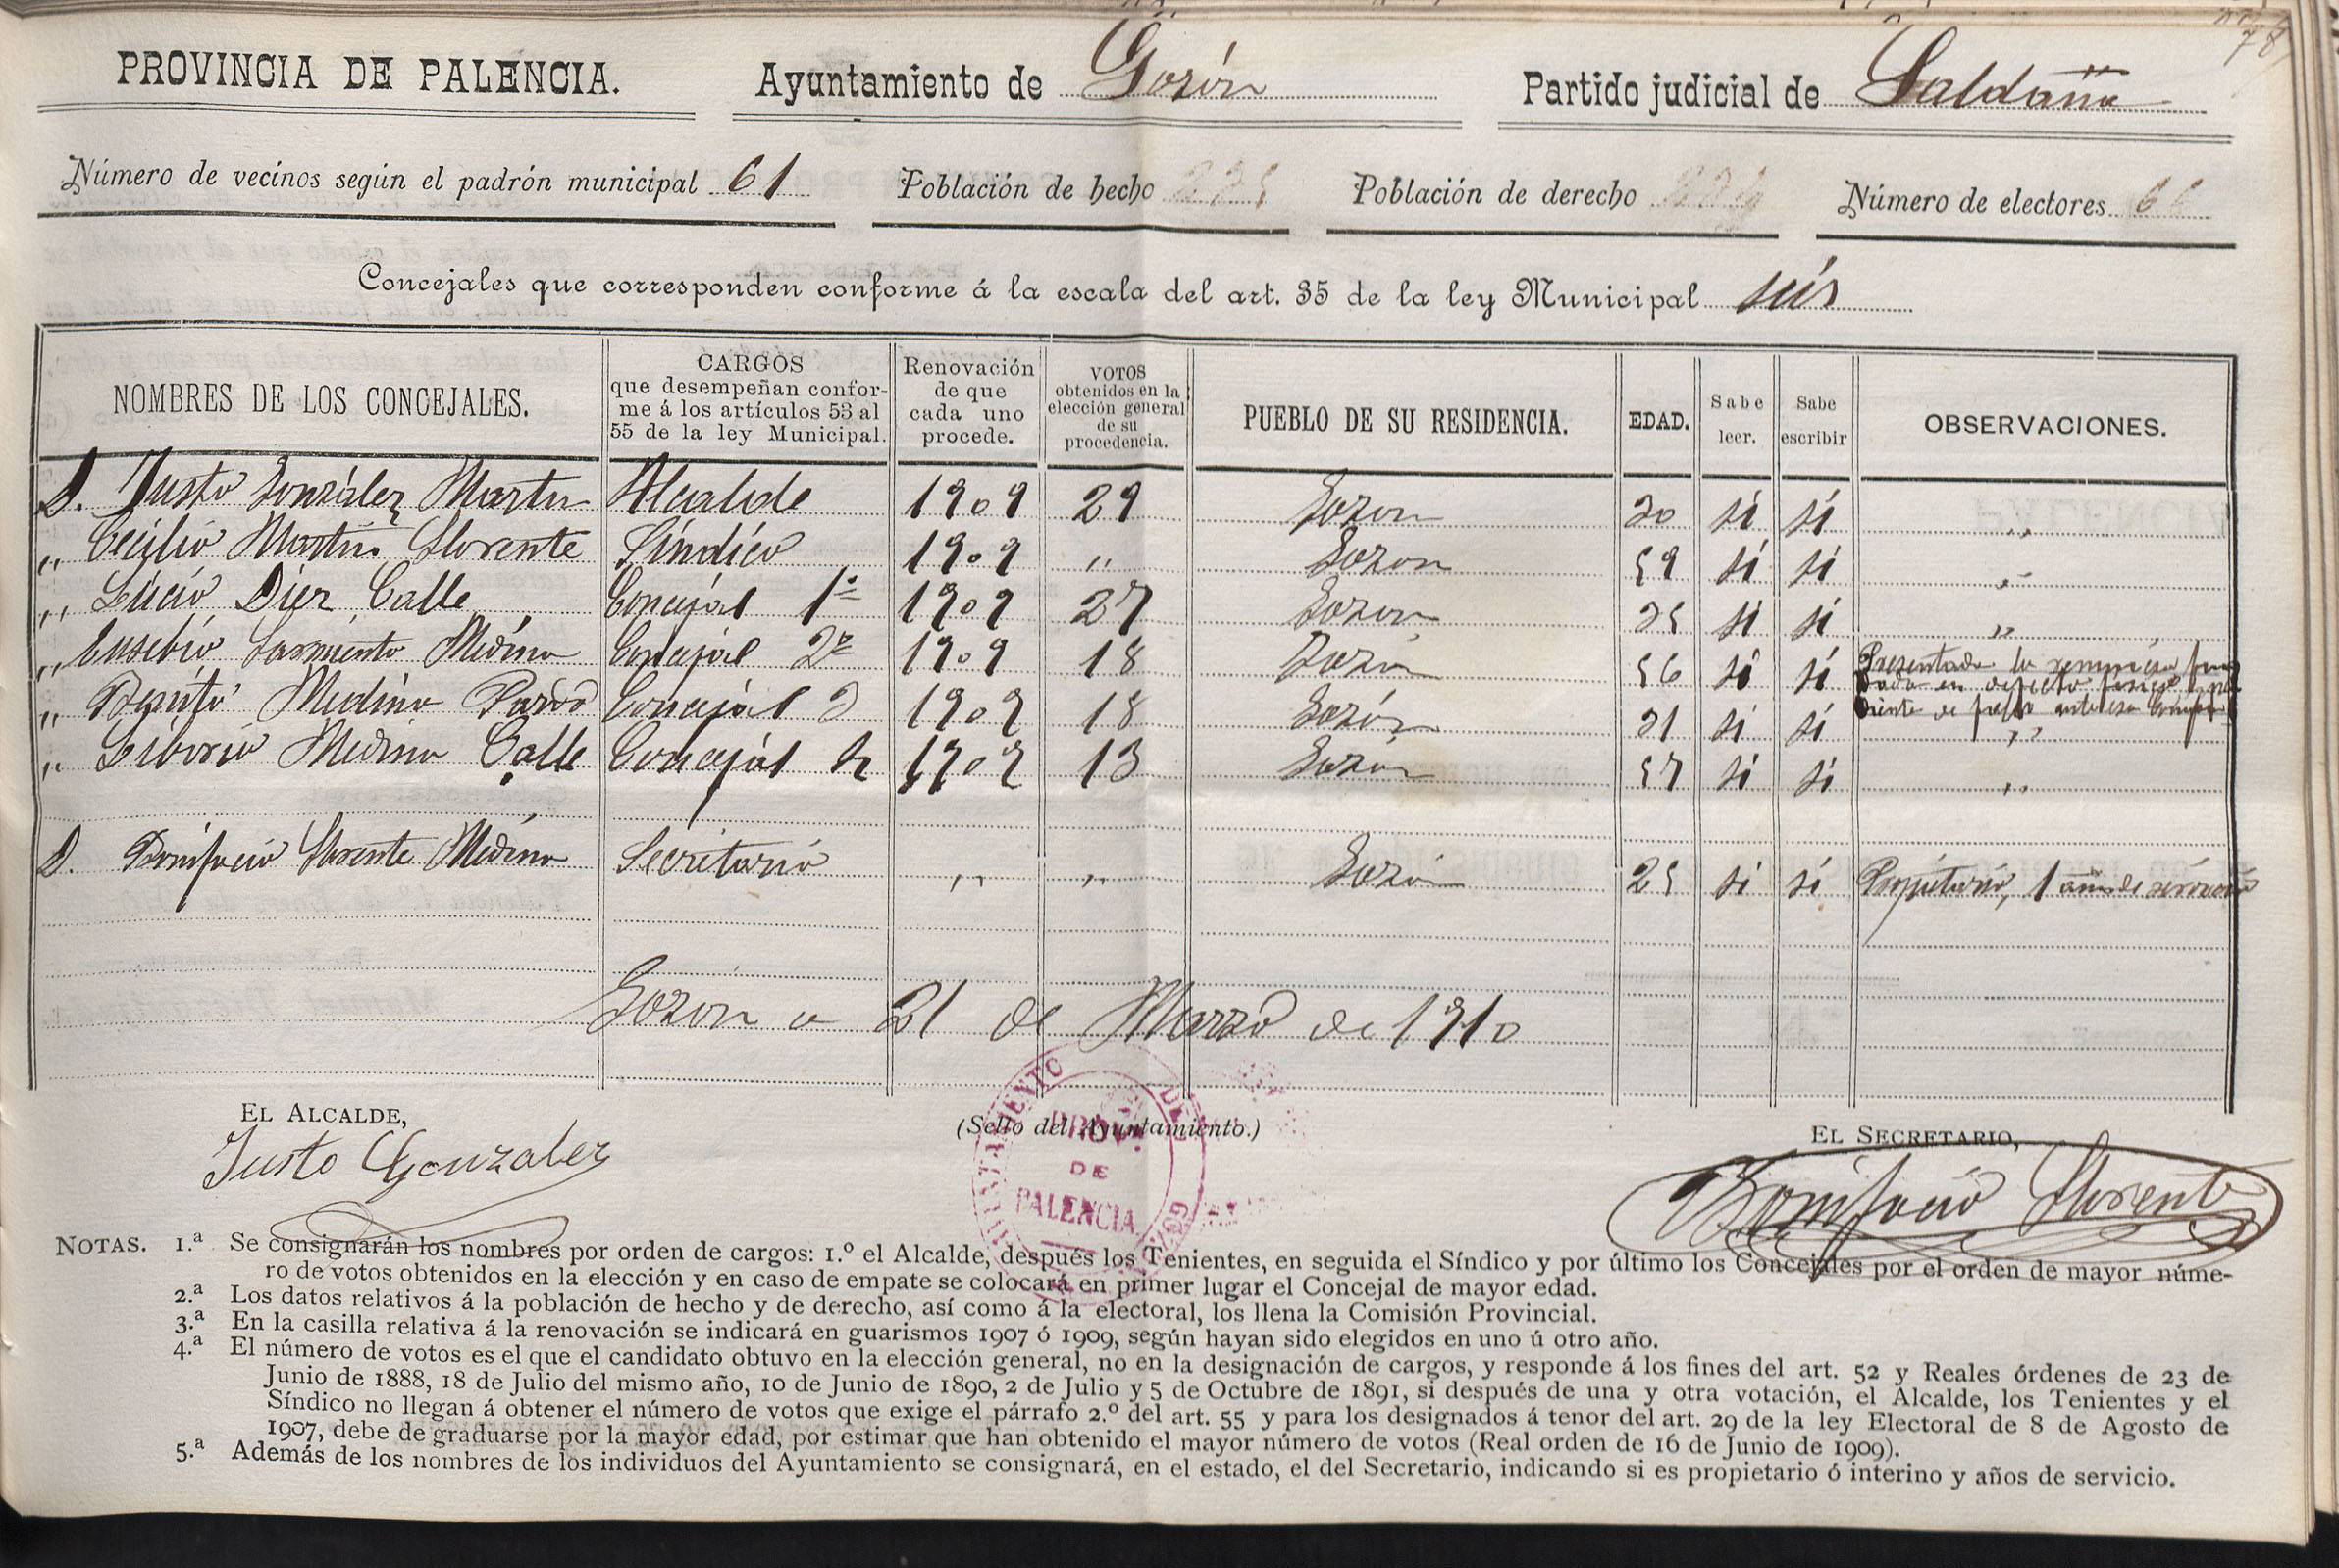 78
PROVINCIA DE PALENCIA. Ayuntamiento de Gozón Partido judicial de Saldaña
Número de vecinos según el padrón municipal 61 Población de hecho Población de derecho Número de electores 66
Concejales que corresponden conforme á la escala del art. 35 de la ley Municipal seis
NOMBRES DE LOS CONCEJALES. CARGOS que desempeñan conforme á los artículos 53 al 55 de la ley Municipal. Renovación de que cada uno procede. VOTOS obtenidos en la elección general de su procedencia. PUEBLO DE SU RESIDENCIA. EDAD. Sabe leer. Sabe escribir OBSERVACIONES.
D. Justo González Martin Alcalde 1909 29 Gozon 30 si si „
„ Cecilio Martin Llorente Síndico 1909 „ Gozon 59 si si „
„ Lucio Diez Calle Concejal 1º 1909 27 Gozon 25 si si „
„ Eusebio Sarmiento Medina Concejal 2º 1909 18 Gozón 56 si si Presentada la renuncia fundada en defecto físico
„ Benito Medina Pardo Concejal 3 1909 18 Gozón 31 si si „
„ Liborio Medina Calle Concejal 4 1909 13 Gozón 57 si si „
D. Bonifacio Llorente Medina Secretario „ „ Gozón 25 si si Propietario, 1 año de servicio
Gozon a 21 de Marzo de 1910
EL ALCALDE,
Justo Gonzalez
(Sello del Ayuntamiento.)
AYUNTAMIENTO DE GOZON
PROV. DE PALENCIA
EL SECRETARIO,
Bonifacio Llorente
NOTAS. 1.ª Se consignarán los nombres por orden de cargos: 1.º el Alcalde, después los Tenientes, en seguida el Síndico y por último los Concejales por el orden de mayor núme-
ro de votos obtenidos en la elección y en caso de empate se colocará en primer lugar el Concejal de mayor edad.
2.ª Los datos relativos á la población de hecho y de derecho, así como á la electoral, los llena la Comisión Provincial.
3.ª En la casilla relativa á la renovación se indicará en guarismos 1907 ó 1909, según hayan sido elegidos en uno ú otro año.
4.ª El número de votos es el que el candidato obtuvo en la elección general, no en la designación de cargos, y responde á los fines del art. 52 y Reales órdenes de 23 de
Junio de 1888, 18 de Julio del mismo año, 10 de Junio de 1890, 2 de Julio y 5 de Octubre de 1891, si después de una y otra votación, el Alcalde, los Tenientes y el
Síndico no llegan á obtener el número de votos que exige el párrafo 2.º del art. 55 y para los designados á tenor del art. 29 de la ley Electoral de 8 de Agosto de
1907, debe de graduarse por la mayor edad, por estimar que han obtenido el mayor número de votos (Real orden de 16 de Junio de 1909).
5.ª Además de los nombres de los individuos del Ayuntamiento se consignará, en el estado, el del Secretario, indicando si es propietario ó interino y años de servicio.